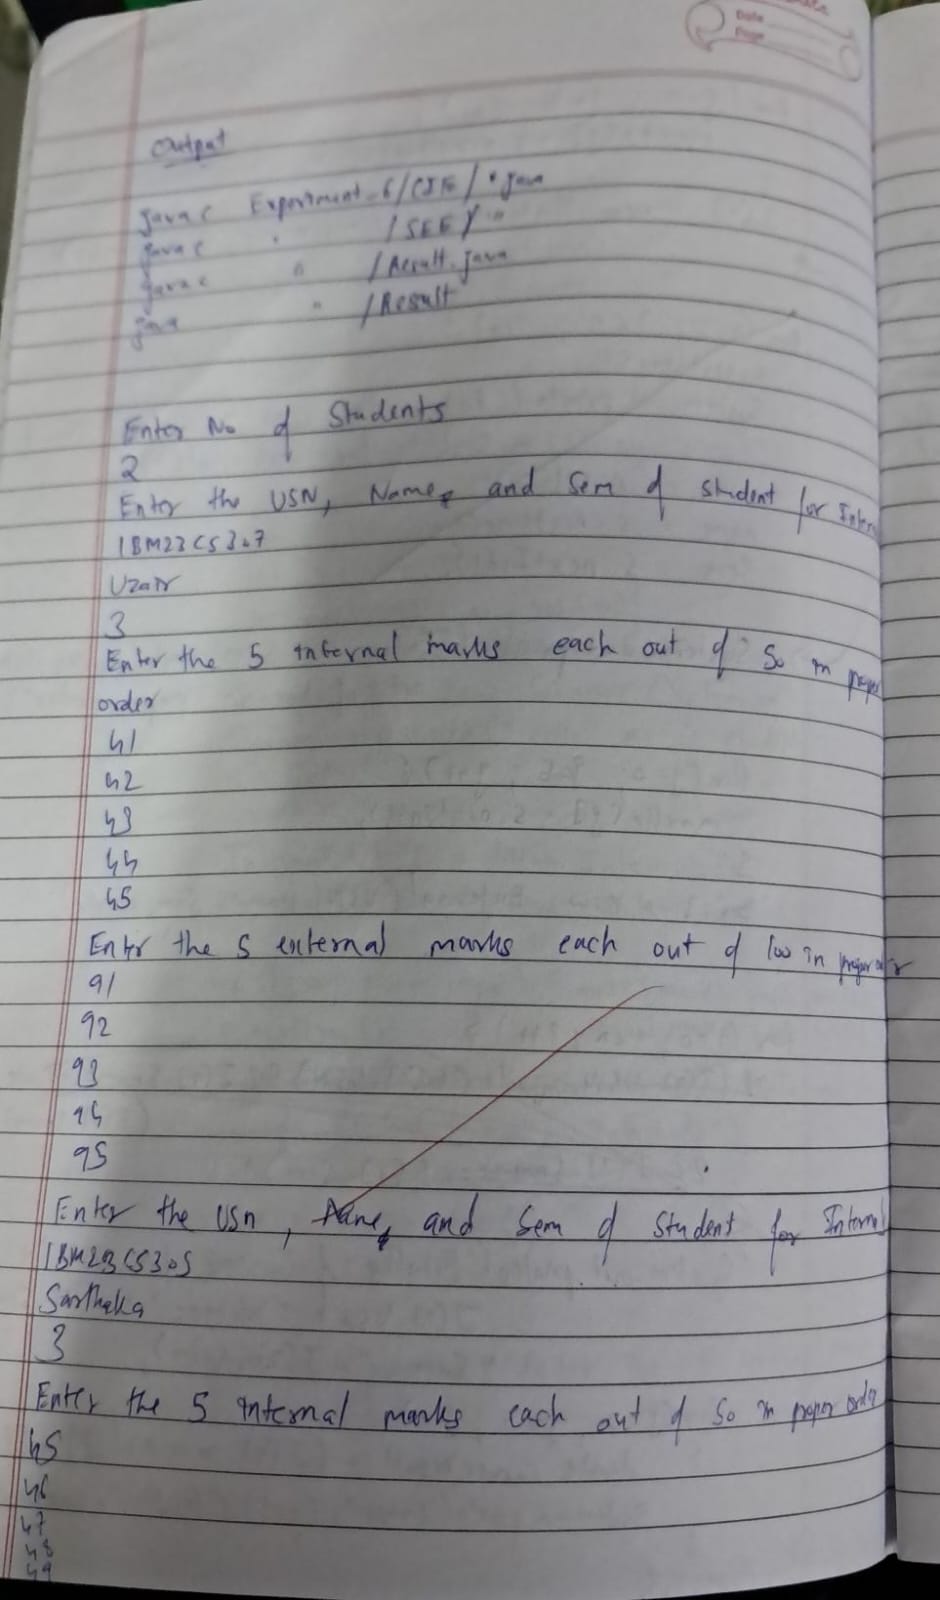 Date
Page
Output
javac Experiment-6/CIE/*.java
javac " /SEE/ "
javac " /Result.java
java " /Result
Enter No of Students
2
Enter the USN, Name, and Sem of student for Intern
1BM23CS307
Uzair
3
Enter the 5 internal marks each out of 50 in proper
order
41
42
43
44
45
Enter the 5 external marks each out of 100 in proper order
91
92
93
94
95
Enter the USn, Name, and Sem of Student for Internal
1BM23CS305
Sarthaka
3
Enter the 5 internal marks each out of 50 in proper order
45
46
47
48
49